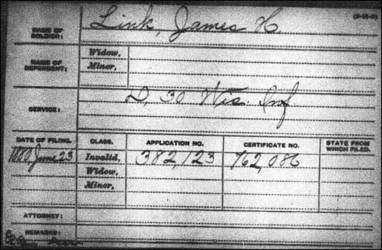 (3-15-11)
NAME OF SOLDIER: Link, James H.
NAME OF DEPENDENT: Widow,
Minor,
SERVICE: D, 30 Wis. Inf
DATE OF FILING. CLASS. APPLICATION NO. CERTIFICATE NO. STATE FROM WHICH FILED.
1880 June 23 Invalid, 382,123 762,086
Widow,
Minor,
ATTORNEY:
REMARKS: